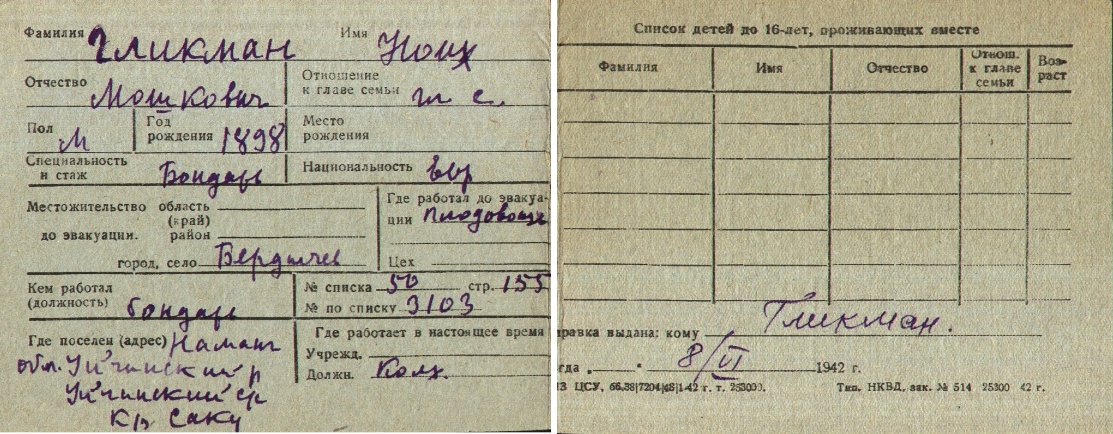 Фамилия Гликман Имя Нойх
Отчество Мошкович Отношение к главе семьи гл с.
Пол М Год рождения 1898 Место рождения
Специальность и стаж Бондарь Национальность евр
Местожительство область
(край)
до эвакуации. район
город, село Бердичев
Где работал до эвакуа-
ции плодовощ
Цех
Кем работал
(должность) бондарь
№ списка 50 стр. 155
№ по списку 3103
Где поселен (адрес) Наманг
обл. Уйчинский р
Уйчинский с/с
К/з Саку
Где работает в настоящее время
Учрежд.
Должн. Колх.
Список детей до 16-лет, проживающих вместе
Фамилия Имя Отчество Отнош. к главе семьи Воз-раст
правка выдана: кому Гликман.
гда „ " 8/VI 1942 г.
ЦСУ,
Тип. НКВД, зак. № 514 25300 42 г.